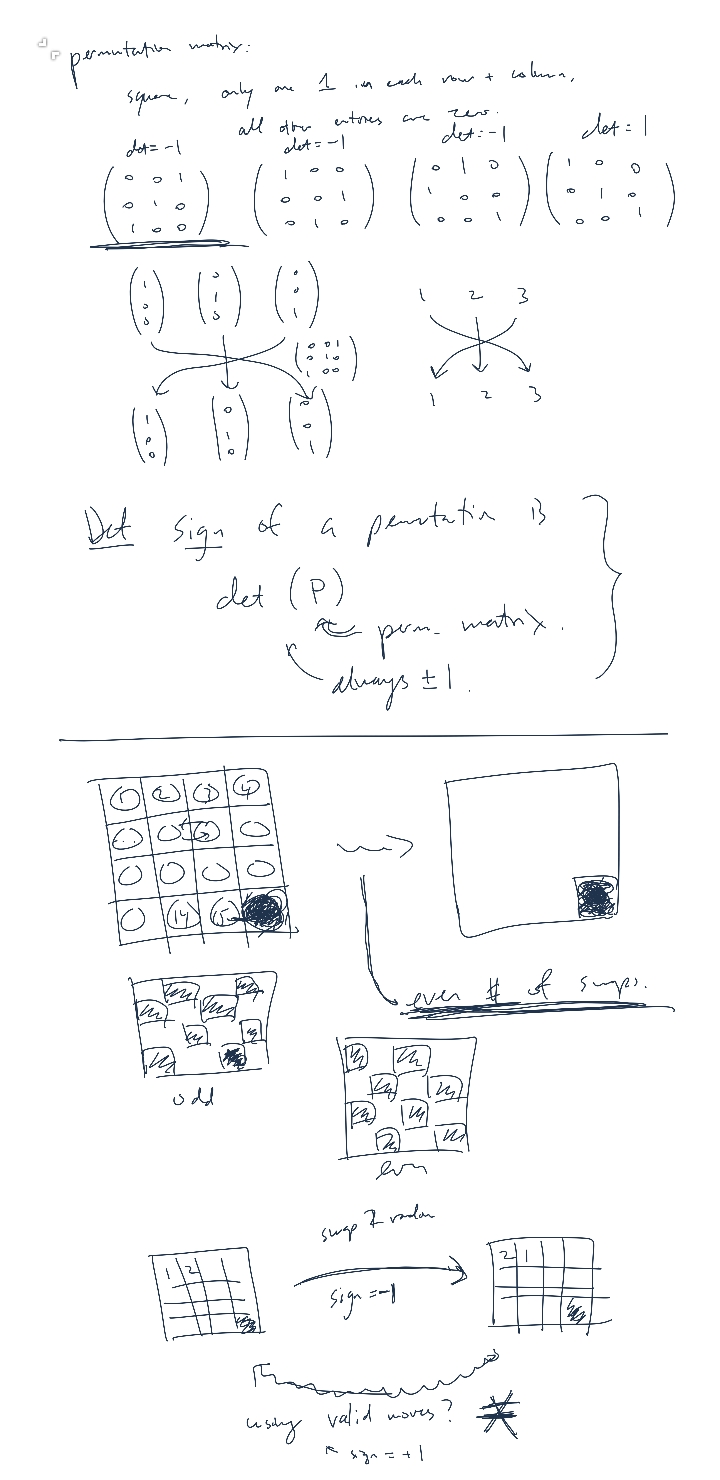 permutation matrix:
square, only one 1 in each row + column,
all other entries are zero.
det = -1 det = -1 det = -1 det = 1
0 0 1 1 0 0 0 1 0 1 0 0
0 1 0 0 0 1 1 0 0 0 1 0
1 0 0 0 1 0 0 0 1 0 0 1
1 0 0
0 1 0
0 0 1
1 2 3
0 0 1
0 1 0
1 0 0
1 2 3
1 0 0
0 1 0
0 0 1
Def sign of a permutation is
det (P)
perm. matrix.
always ±1.
1 2 3 4
6
14 15
even # of swaps.
odd
even
swap 2 random
1 2
2 1
sign = -1
using valid moves?
sign = +1